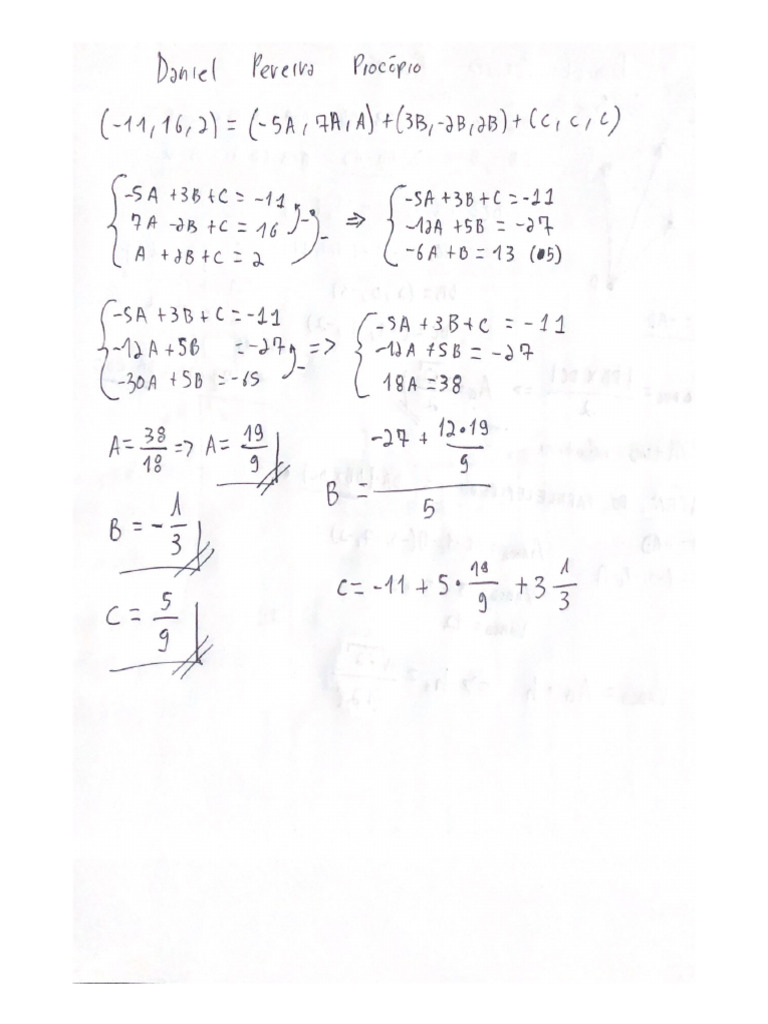 Daniel Pereira Procópio
(-11, 16, 2) = (-5A, 7A, A) + (3B, -2B, 2B) + (C, C, C)
{ -5A + 3B + C = -11
7A - 2B + C = 16
A + 2B + C = 2
=> { -5A + 3B + C = -11
-12A + 5B = -27
-6A + B = 13 (•5)
{ -5A + 3B + C = -11
-12A + 5B = -27
-30A + 5B = -65
=> { -5A + 3B + C = -11
-12A + 5B = -27
18A = 38
A = 38/18 => A = 19/9
B = (-27 + 12•19/9)/5
B = -1/3
C = -11 + 5•19/9 + 3 1/3
C = 5/9